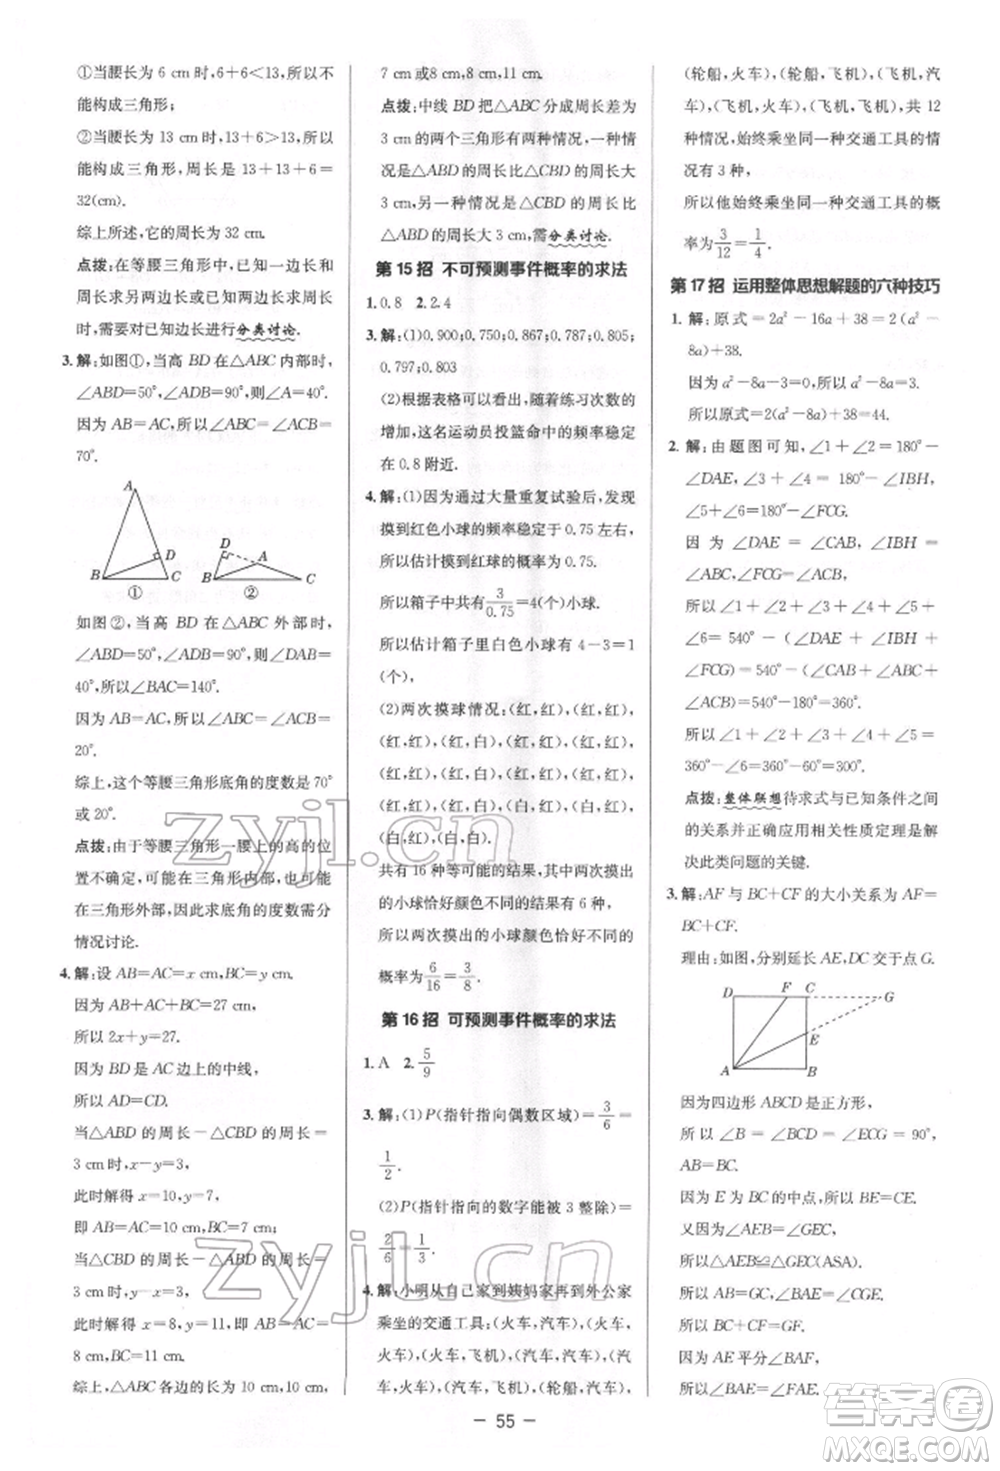 ①当腰长为 6 cm 时,6+6<13,所以不
能构成三角形;
②当腰长为 13 cm 时,13+6>13,所以
能构成三角形,周长是 13+13+6=
32(cm).
综上所述,它的周长为 32 cm.
点拨:在等腰三角形中,知一边长和周
长求另两边长或知两边长求周长
时,需要对已知边长进行分类讨论.
3.解:如图①,当高 BD 在△ABC 内部时,
∠ABD=50°,∠ADB=90°,则∠A=40°.
因为 AB=AC,所以∠ABC=∠ACB=
70°.
A
D
B
C
①
D
A
B
C
②
如图②,当高 BD 在△ABC 外部时,
∠ABD=50°,∠ADB=90°,则∠BAD=
40°,所以∠BAC=140°.
因为 AB=AC,所以∠ABC=∠ACB=
20°.
综上,这个等腰三角形底角的度数是70°
或20°.
点拨:由于等腰三角形一腰上的高的位
置不确定,可能在三角形内部,也可能
在三角形外部,因此求底角的度数需分
情况讨论.
4.解:设 AB=AC=x cm,BC=y cm.
因为 AB+AC+BC=27,
所以 2x+y=27.
因为 BD 是 AC 边上的中线,
所以 AD=CD.
当△ABD 的周长-△CBD 的周长=
3 cm时,x-y=3,
此时解得 x=10,y=7,
即 AB=AC=10 cm,BC=7 cm;
当△CBD 的周长-△ABD 的周长=
3 cm时,y-x=3,
此时解得 x=8,y=11,
即 AB=AC=8 cm,BC=11 cm.
综上,△ABC 各边的长为 10 cm,10 cm,
7 cm或8 cm,8 cm,11 cm.
点拨:中线 BD 把△ABC 分成周长差为
3 cm 的两个三角形有两种情况,一种情
况为 △ABD 的周长比 △CBD 的周长
大3 cm,另一种情况是△CBD 的周长比
△ABD 的周长大 3 cm,需分类讨论.
第 15 招 不可预测事件概率的求法
1.0.8 2.2.4
3.解:(1)0.900;0.750;0.867;0.787;0.805;
0.797;0.803
(2)根据表格可以看出,随着练习次数的
增加,这名运动员投篮命中的频率稳定
在 0.8 附近.
4.解:(1)因为通过大量重复试验后,发现
摸到红色小球的频率稳定于 0.75 左右,
所以估计摸到红球的概率为 0.75.
所以箱子中共有 3/0.75=4(个)小球.
所以估计箱子里白色小球有 4-3=1
(个),
(2)两次摸球情况:(红,红),(红,红),
(红,红),(红,白),(红,红),(红,红),
(红,红),(红,白),(红,红),(红,红),
(红,红),(红,白),(白,红),(白,红),
(白,红),(白,白).
共有 16 种等可能的情况,两次摸出的
小球恰好颜色不同的结果有 6 种,
所以两次摸出的小球颜色恰好不同的
概率为 6/16=3/8.
第 16 招 可预测事件概率的求法
1.A 2.5/9
3.解:(1)P(指针指向偶数区域)=3/6=
1/2.
(2)P(指针指向的数字能被 3 整除)=
2/6=1/3.
4.解:小明从自己家到姨妈家再到外公家
乘坐的交通工具:(火车,火车),(火车,
汽车),(火车,飞机),(汽车,
火车),(汽车,汽车),(汽车,飞机),(轮船,汽车),
(轮船,火车),(轮船,飞机),(飞机,汽
车),(飞机,火车),(飞机,飞机),共 12
种情况,始终乘坐同一种交通工具的情
况有 3 种,
所以他始终乘坐同一种交通工具的概
率为 3/12=1/4.
第 17 招 运用整体思想解题的六种技巧
1.解:原式=2a²-16a+38=2(a²-
8a)+38.
因为 a²-8a-3=0,所以 a²-8a=3.
所以原式=2(a²-8a)+38=44.
2.解:由题图可知,∠1+∠2=180°-
∠DAE,∠3+∠4=180°-∠IBH,
∠5+∠6=180°-∠FCG.
因为∠DAE=∠CAB,∠IBH=
∠ABC,∠FCG=∠ACB,
所以∠1+∠2+∠3+∠4+∠5+
∠6=540°-(∠DAE+∠IBH+
∠FCG)=540°-(∠CAB+∠ABC+
∠ACB).
所以∠1+∠2+∠3+∠4+∠5+
∠6=540°-180°=
360°.
点拨:整体联想待求式与已知条件之间
的关系并正确应用相关性质定理是解
决此类问题的关键.
3.解:AF 与 BC+CF 的大小关系为 AF=
BC+CF.
理由:如图,分别延长 AE,DC 交于点 G.
D
F
C
G
E
A
B
因为四边形 ABCD 是正方形,
所以∠B=∠BCD=∠ECG=90°,
AB=BC.
因为 E 为 BC 的中点,所以 BE=CE.
又因为∠AEB=∠GEC,
所以△AEB≌△GEC(ASA).
所以 AB=GC,∠BAE=∠G.
所以 BC+CF=GF.
因为 AE 平分∠BAF,
所以∠BAE=∠FAE.
— 55 —
zyjl.cn
zyjl.cn
答案圈
MXQE.COM